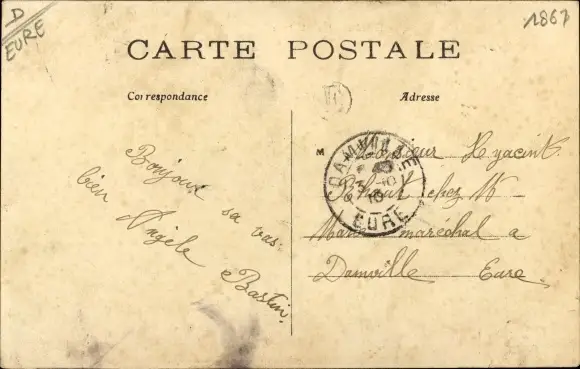 D
EURE
1867
CARTE POSTALE
Correspondance
Adresse
Bonjour sa vas
bien Angèle
Bastin
M
Monsieur Hyacint
chez Mr
maréchal a
Damville Eure
DAMVILLE
10
EURE